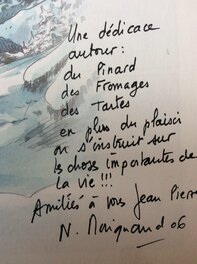 Une dédicace
autour :
du Pinard
des Fromages
des Tartes
en plus du plaisir
on s'instruit sur
les choses importantes de
la vie !!!
Amitiés à vous Jean Pierre
N. 06